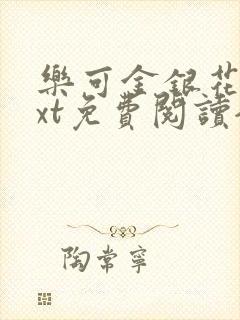 樂可金銀花
xt免費閱讀
陶常寧